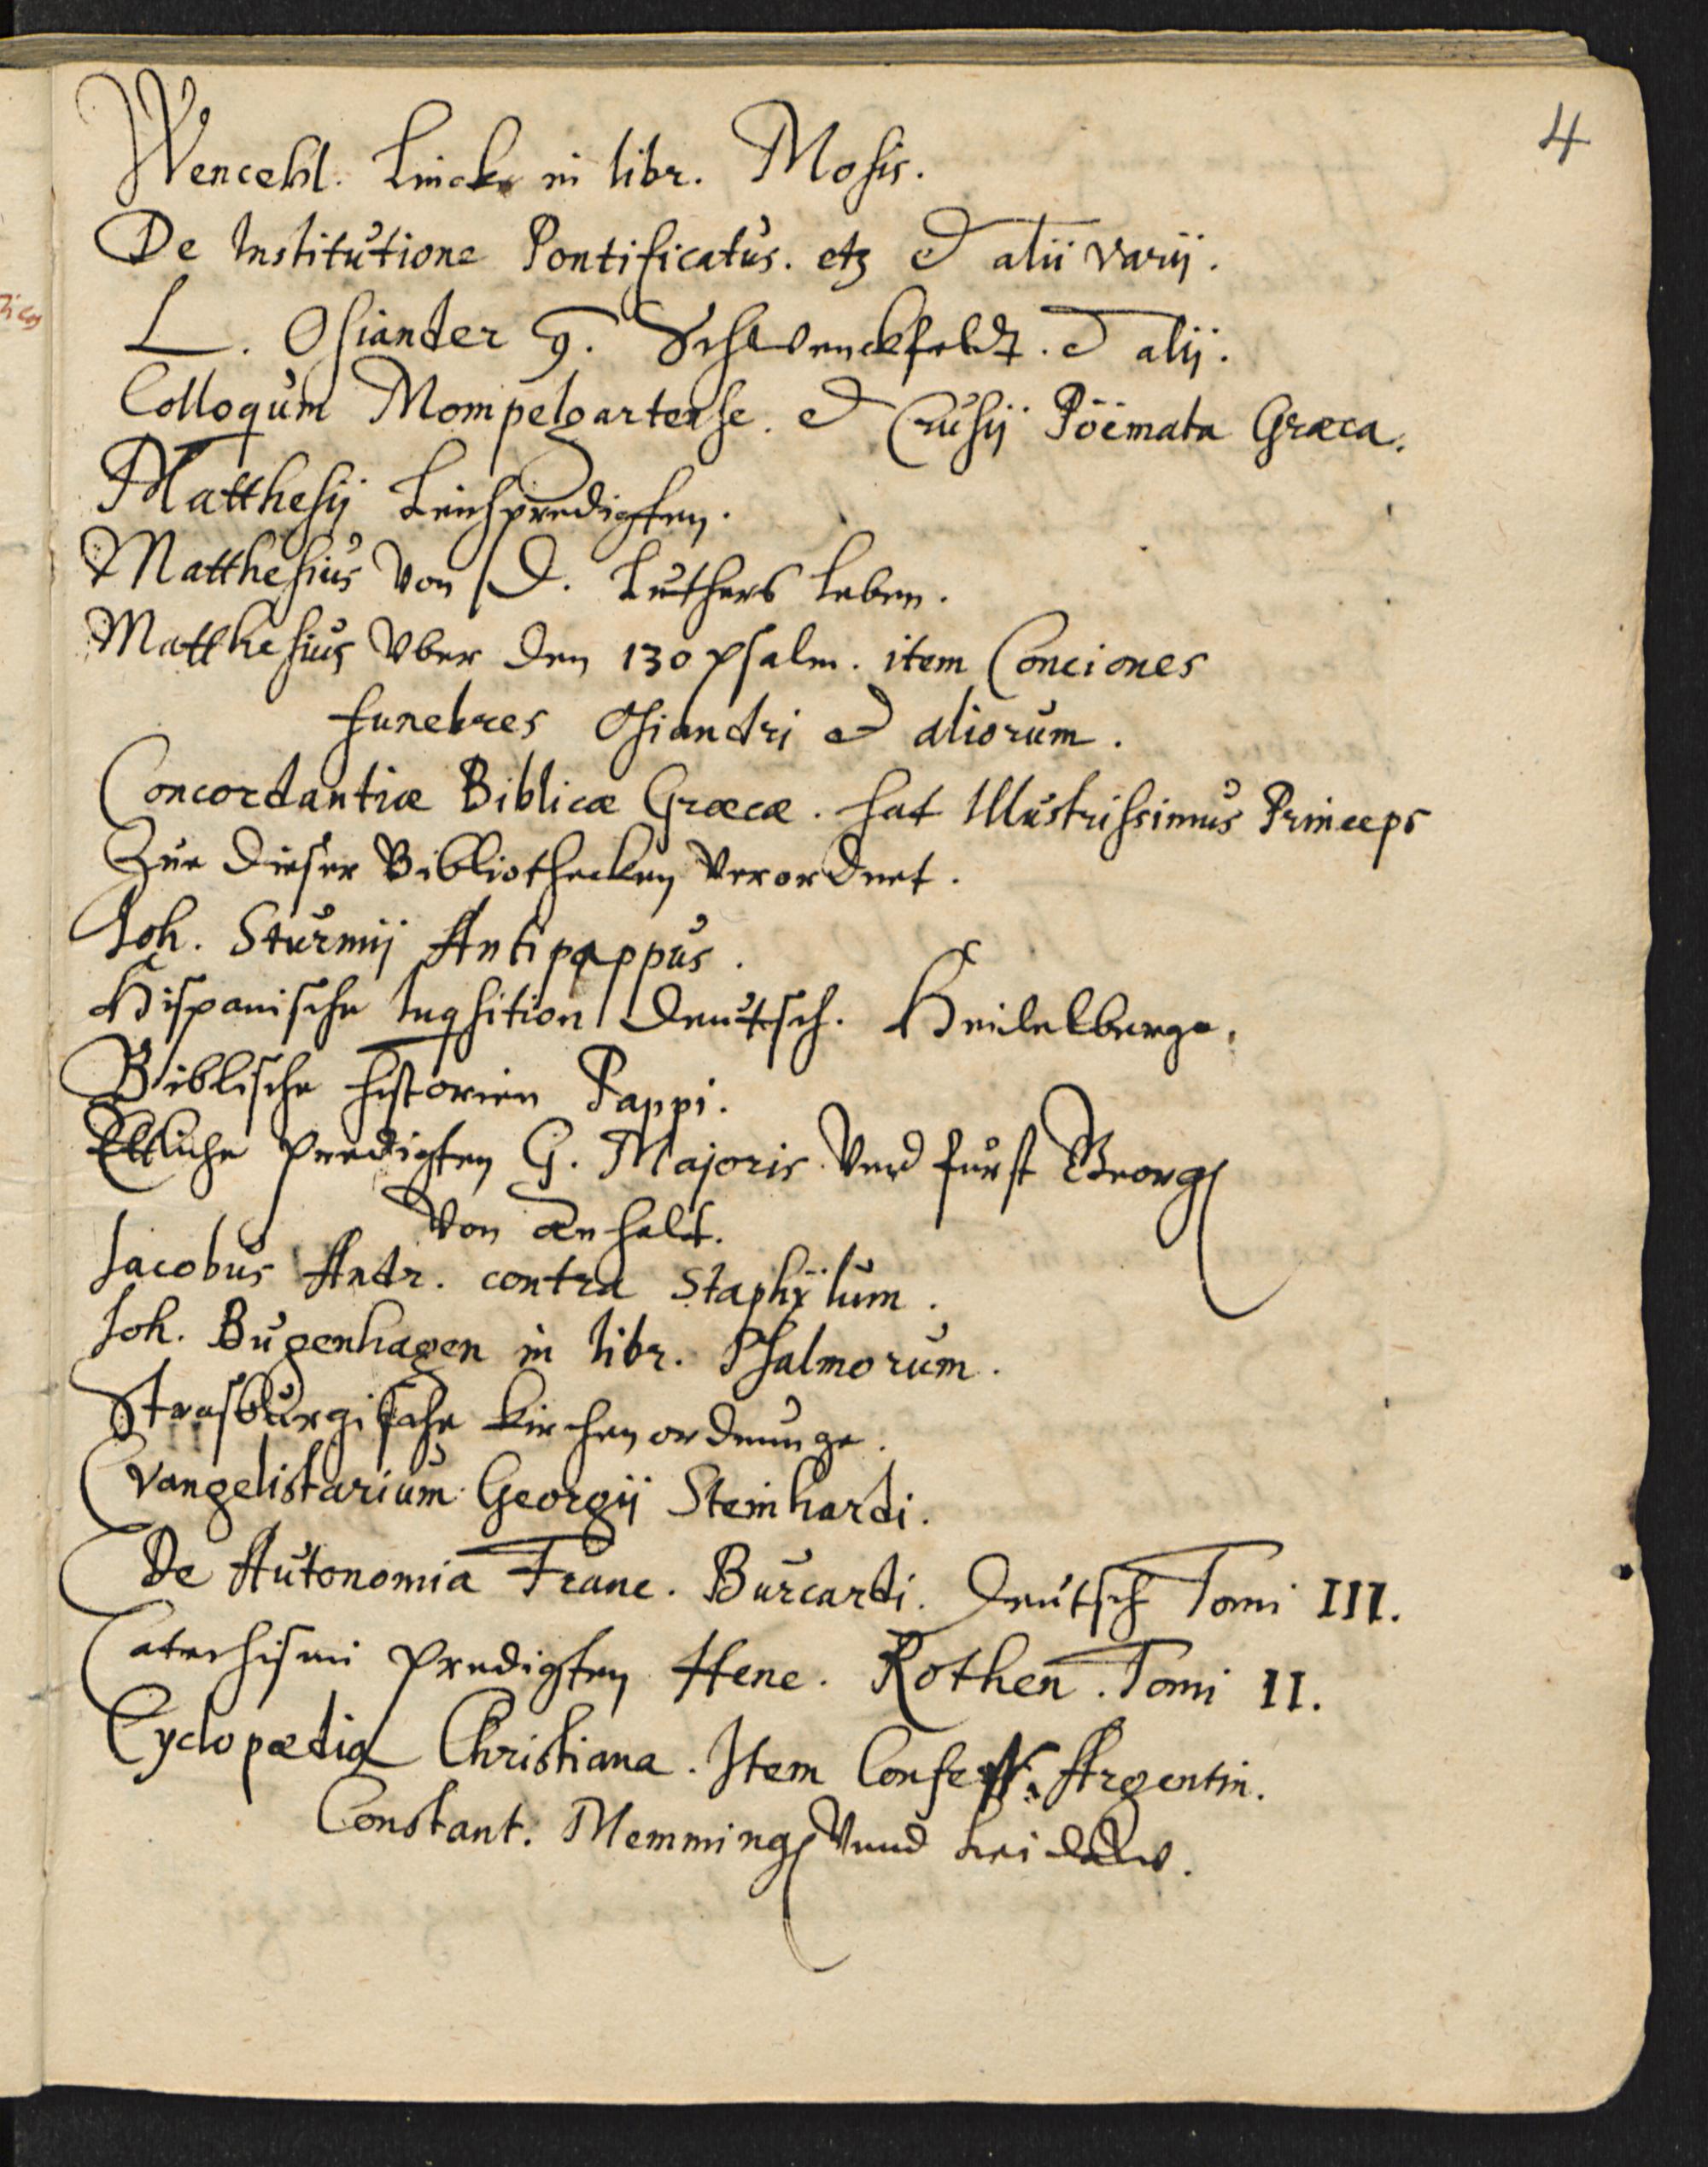 4
Wencesl. Linck in libr. Mosis.
De Institutione Pontificatus. etz et alii varij.
L. Osiander 9. Schwenckfeldt. et alij.
Colloqum Mompelgartense. et Crusij Poëmata Græca.
Matthesij Leichpredigten.
Matthesius von D. Luthers Leben.
Matthesius vber den 130 psalm. item Conciones
funebres Osiandri et aliorum.
Concordantiæ Biblicæ Græcæ. hat Illustrissimus Princeps
Zue dieser Bibliothecken verordnet.
Joh. Sturmij Antipappus.
Hispanische Inqsition deutsch. Heidelberge.
Biblische historien Pappi.
Ettliche Predigten G. Majoris. vnd fürst Georgs
von Anhalt.
Jacobus Andr. contra Staphÿlum.
Joh. Bugenhagen in libr. Psalmorum.
Strasburgische Kirchenordnunge.
Evangelistarium Georgij Steinharti.
De Autonomia Franc. Burcardi. deutsch Tomi III.
Catechismi Predigten Hene. Rothen. Tomi II.
Cyclopædia Christiana. Item Confess. Argentin.
Constant. Memming vnnd